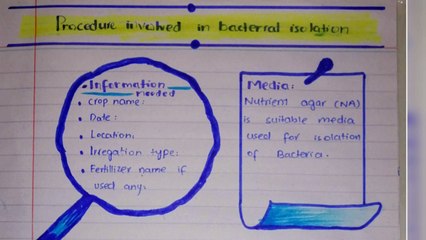 Procedure involved in bacterial isolation
• Information
needed
• Crop name:
• Date:
• Location:
• Irregation type:
• Fertillizer name if
used any:
Media:
Nutrient agar (NA)
is suitable media
used for isolation
of Bacteria.